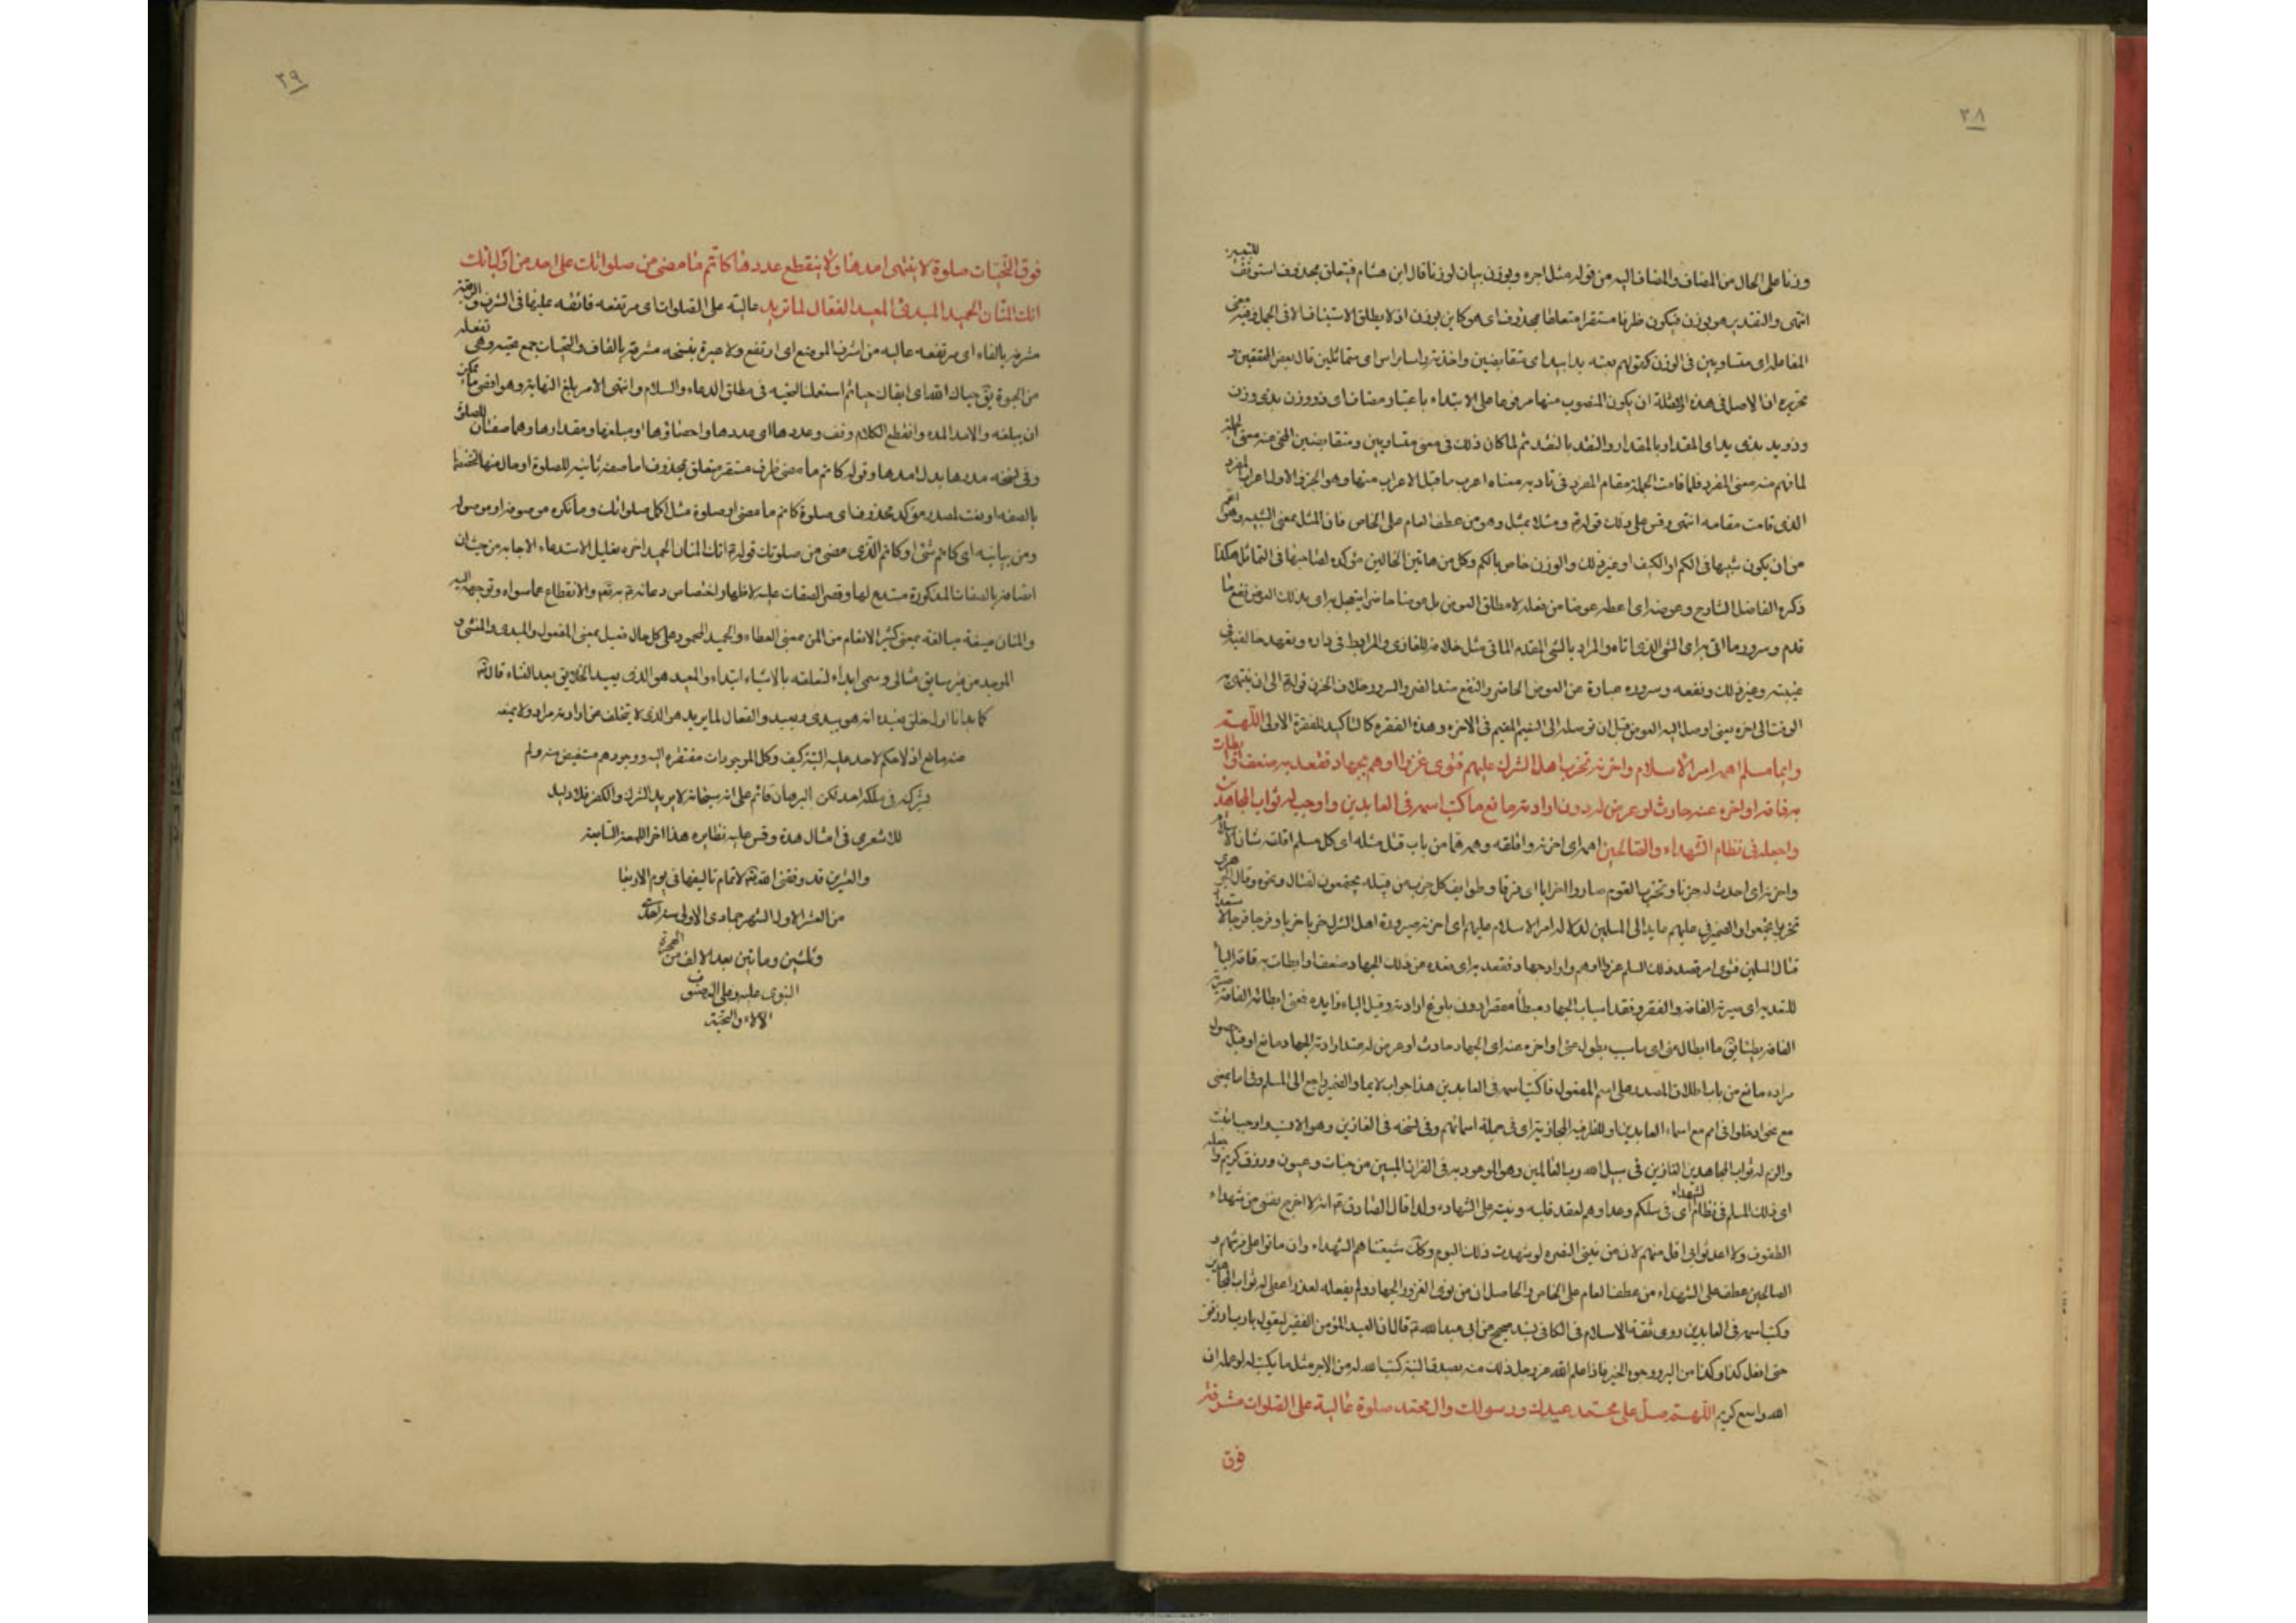 ٣٨
وزنا على الحال من المضاف والمضاف اليه من قوله مثل اجره وبوزن بيان لوزنا قال ابن هشام فيتعلق بمحذوف استونف للتبيين
انتهى والتقدير هو بوزن فيكون ظرفا مستقرا متعلقا بمحذوف اى هو كاين بوزن اذ لا يطلق الاستيناف الا فى الجمل وفيه معنى
المفاعلة اى متساويين فى الوزن كقولهم بعته يدا بيد اى متقابضين واخذته راسا براس اى متماثلين قال بعض المحققين و
تحريره ان الاصل فى هذه الامثلة ان يكون المنصوب منها مرفوعا على الابتداء باعتبار مضاف اى ذو وزن بذى وزن
وذو يد بذى يد اى المقدار بالمقدار والنقد بالنقد ثم لما كان ذلك فى معنى متساويين ومتقابضين انمحى منه معنى الجملة
لما فهم منه معنى المفرد فلما قامت الجملة مقام المفرد فى تادية معناه اعرب ما قبل الاعراب منها وهو الجزء الاول اعراب المفرد
الذى قامت مقامه انتهى وقس على ذلك قوله ومثلا بمثل وهو من عطف العام على الخاص فان المثل بمعنى الشبيه وهو اعم
من ان يكون شبيها فى الكم او الكيف او غير ذلك والوزن خاص بالكم وكل من هاتين الحالين مؤكده لصاحبها فى التماثل هكذا
ذكره الفاضل الشارح وعوضه اى اعطه عوضا من فعله لا مطلق العوض بل عوضا حاضرا يتعجل به اى بذلك العوض نفع ما
قدم وسرور ما اتى به اى الشى الذى اتاه والمراد بالشى المقدم الماتى مثل خلافته للغازى والمرابط فى داره وتعهد خالفيه فى
غيبته وغير ذلك ونفعه وسروره عبارة عن العوض الحاضر والنفع ضد الضر والسرور خلاف الحزن قوله الى ان ينتهى به
الوقت الى اخره يعنى اوصل اليه العوض قبل ان توصله الى النعيم المقيم فى الاخره وهذه الفقره كالتاكيد للفقرة الاولى اللهم
وايما مسلم اهمه امر الاسلام واحزنه تحزب اهل الشرك عليهم فنوى غزوا او هم بجهاد فقعد به ضعف او ابطات
به فاقه او اخره عنه حادث او عرض له دون ارادته مانع فاكتب اسمه فى العابدين واوجب له ثواب المجاهدين
واجعله فى نظام الشهداء والصالحين اهمه اى احزنه واقلقه وهمه هما من باب قتل مثله اى كل مسلم اقلقه شان الاسلام
واحزنه اى احدث له حزنا وتحزب القوم صاروا احزابا اى فرقا وطوايف كل حزب من قبيله يجتمعون لقتال ونحوه وقال الجوهرى
تحزبوا تجمعوا والضمير فى عليهم عايد الى المسلمين لدلالة امر الاسلام عليهم اى احزنه صيرورة اهل الشرك حزبا حزبا وفوجا فوجا لا ستعداد
قتال المسلمين فنوى اى قصد ذلك المسلم غزوا او هم واراد جهادا فقعد به اى بعده من ذلك الجهاد ضعف او ابطات به فاقة الباء
للتعديه اى صيرته الفاقه والفقر وفقد اسباب الجهاد مبطأ مقصرا دون بلوغ ارادته وقيل الباء زايده فمعنى ابطاته الفاقة صيرته
مراده مانع من باب اطلاق المصدر على اسم المفعول فاكتب اسمه فى العابدين هذا جواب لايما والضمير راجع الى المسلم وفى اما بمعنى
مع نحو ادخلوا فى امم مع اسماء العابدين او للظرفية المجازية اى فى جملة اسمائهم وفى نسخه فى الغازين وهو الانسب واوجب اثبت
والزم له ثواب المجاهدين الغازين فى سبيل الله رب العالمين وهو الموعود به فى القران المبين من جنات وعيون ورزق كريم واجعله
اى ذلك المسلم فى نظام الشهداء اى فى سلكهم وعداد هم لعقد قلبه ونيته على الشهاده ولذا قال الصادق ع انه لا اخرج نفسى من شهداء
الطفوف ولا اعد ثوابى اقل منهم لان من نيتى النصره لو شهدت ذلك اليوم وكك شيعتنا هم الشهداء وان ماتوا على فرشهم و
الصالحين عطف على الشهداء من عطف العام على الخاص والحاصل ان من نوى الغزو والجهاد ولم يفعله لعذر اعطى له ثواب المجاهدين
وكتب اسمه فى العابدين روى ثقة الاسلام فى الكافى بسند صحيح عن ابى عبد الله ع قال ان العبد المؤمن الفقير ليقول يا رب ارزقنى
حتى افعل كذا وكذا من البر ووجوه الخير فاذا علم الله عز وجل ذلك منه بصدق النية كتب الله له من الاجر مثل ما يكتب له لو عمله ان
الله واسع كريم اللهم صل على محمد عبدك ورسولك وال محمد صلوة عالية على الصلوات مشرفة
فوق
٣٩
فوق التحيات صلوة لا ينتهى امدها ولا ينقطع عددها كاتم ما مضى من صلواتك على احد من اوليائك
انك المنان الحميد المبدئ المعيد الفعال لما تريد عالية على الصلوات اى مرتفعه فائقه عليها فى الشرف والرتبة
مشرفه بالفاء اى مرتفعه عاليه من اشرف الموضع اى ارتفع ولا عبرة بنسخه مشرقه بالقاف والتحيات جمع تحيه وهى تفعله
من الحيوة يق حياك الله اى ابقاك حيا ثم استعملت التحيه فى مطلق الدعاء والسلام وانتهى الامر بلغ النهاية وهو اقصى ما يمكن
ان يبلغه والامد المده وانقطع الكلام وقف وعددها اى عددها واحصاؤها او مبلغها ومقدارها وهما صفتان للصلوة
وفى نسخه مددها بدل امدها وقوله كاتم ما مضى ظرف مستقر متعلق بمحذوف اما صفه ثانيه للصلوة او حال منها لتخصصها
بالصفه او نعت لمصدر مؤكد محذوف اى صلوة كاتم ما مضى او صلوة مثل اكمل صلواتك وما نكره موصوفه او موصوله
ومن بيانيه اى كاتم شى او كاتم الذى مضى من صلوتك قوله انك المنان الحميد اخره تعليل لاستدعاء الاجابه من حيث ان
اتصافه بالصفات المذكورة مستدع لها وقصر الصفات عليه لاظهار اختصاص دعائه به تع والانقطاع عما سواه وتوجهه اليه
والمنان صيغة مبالغه بمعنى كثير الانعام من المن بمعنى العطاء والحميد المحمود على كل حال فعيل بمعنى المفعول والمبدى المنشى
الموجد من غير سابق مثال وسمى ابداء لتعلقه بالاشياء ابتداء والمعيد هو الذى يعيد الخلايق بعد الفناء قال تع
كما بدانا اول خلق نعيده انه هو يبدئ ويعيد والفعال لما يريد هو الذى لا يتخلف عن ارادته مراد ولا يمنعه
عنه مانع اذ لا حكم لاحد عليه البتة كيف وكل الموجودات مفتقره اليه ووجودهم مستفيض منه ولم
يشركه فى ملكه احد لكن البرهان قائم على انه سبحانه لا يريد الشرك والكفر فلا دليل
للاشعرى فى امثال هذه وقس عليه نظايره هذا اخر اللمعة السابعة
والعشرين قد وفقنى الله تع لاتمام تاليفها فى يوم الاربعا
من العشر الاول لشهر جمادى الاولى سنه احدى
وثلثين وماتين بعد الالف من الهجرة
النبوى عليه وعلى اله صنوف
الالاء والتحية